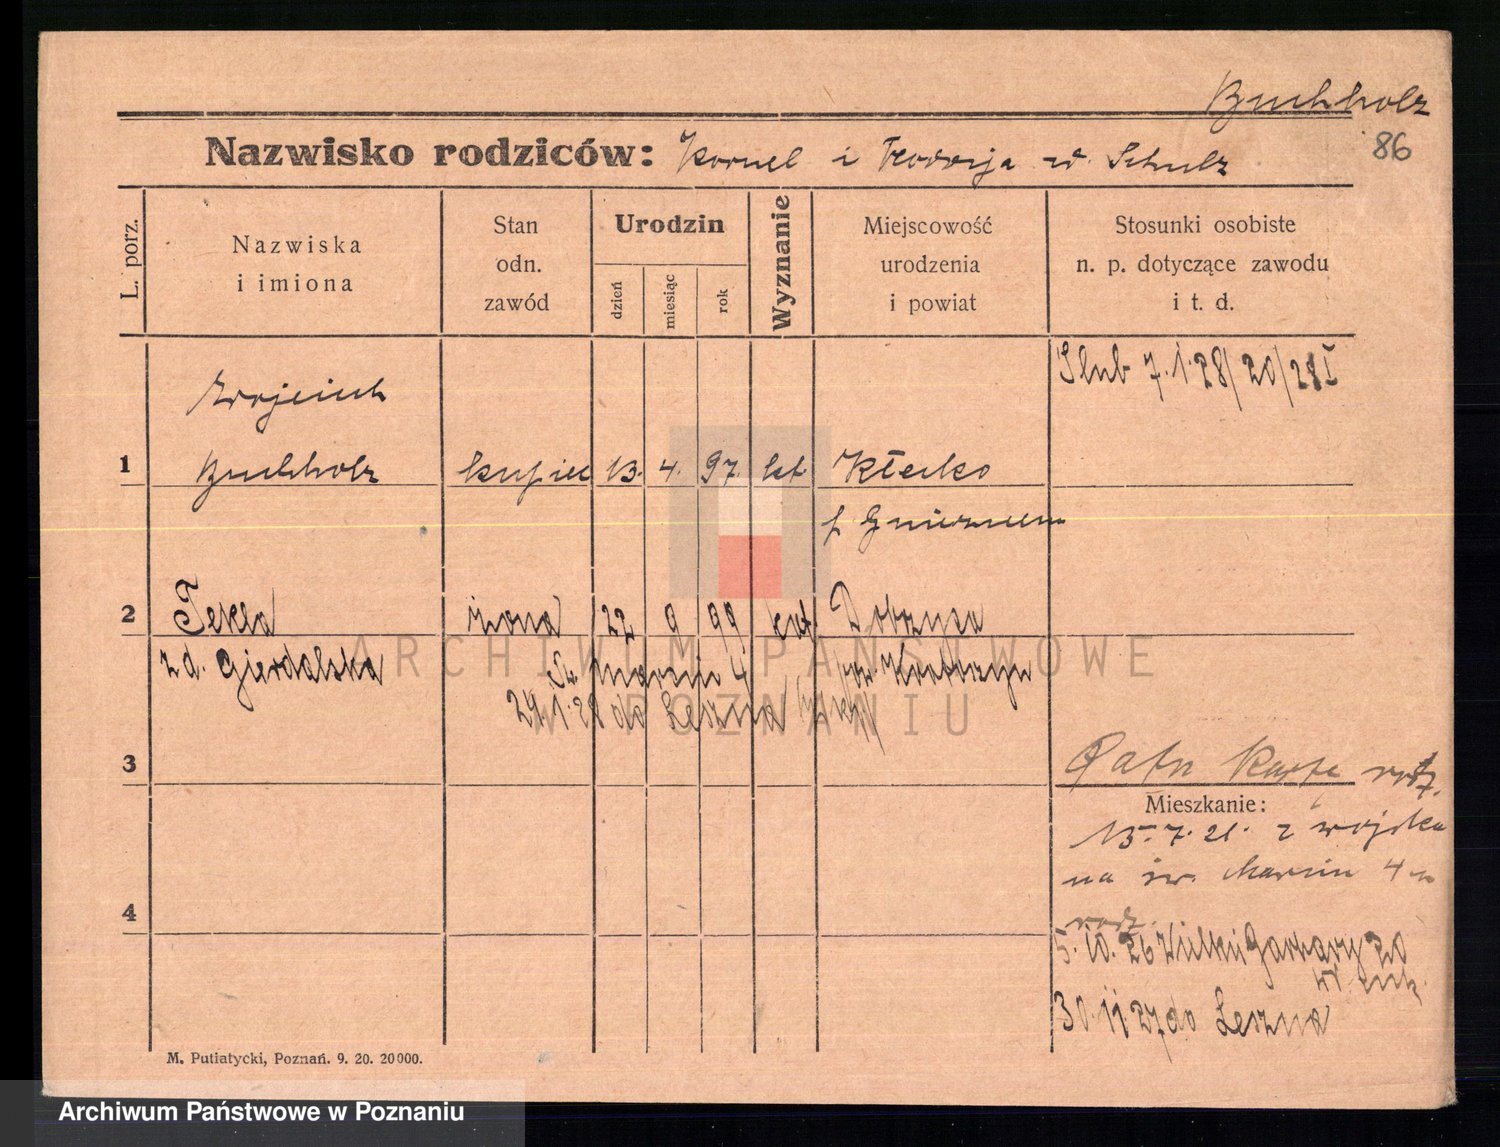 Buchholz
86
Nazwisko rodziców: Kornel i Teodozja ur. Schulz
L. porz.
Nazwiska i imiona
Stan odn. zawód
Urodzin
dzień
miesiąc
rok
Wyznanie
Miejscowość urodzenia i powiat
Stosunki osobiste n. p. dotyczące zawodu i t. d.
Ślub 7.1.28/20/28 I
Wojciech
1 Buchholz kupiec 13. 4. 97. kat. Kłecko
p Gnieznem
2 Tekla żona 22 9 99 kat. Dobrzyca
z d. Gierdalska Św. Marcin 4 pow. Krotoszyn
29.1.28 do Leszna
ARCHIWUM PAŃSTWOWE
W POZNANIU
3
Patrz Karta rodz.
Mieszkanie:
15.7.21. z wojska
na św. Marcin 4
rodz.
4
5.10.26 Wielkie Garbary 20
30.11.27 do Leszna
M. Putiatycki, Poznań. 9. 20. 20000.
Archiwum Państwowe w Poznaniu